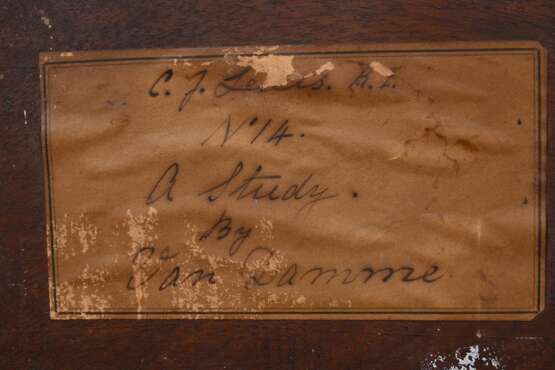 C. J. Lewis. R.I.
No 14.
A Study.
By
Van Damme.